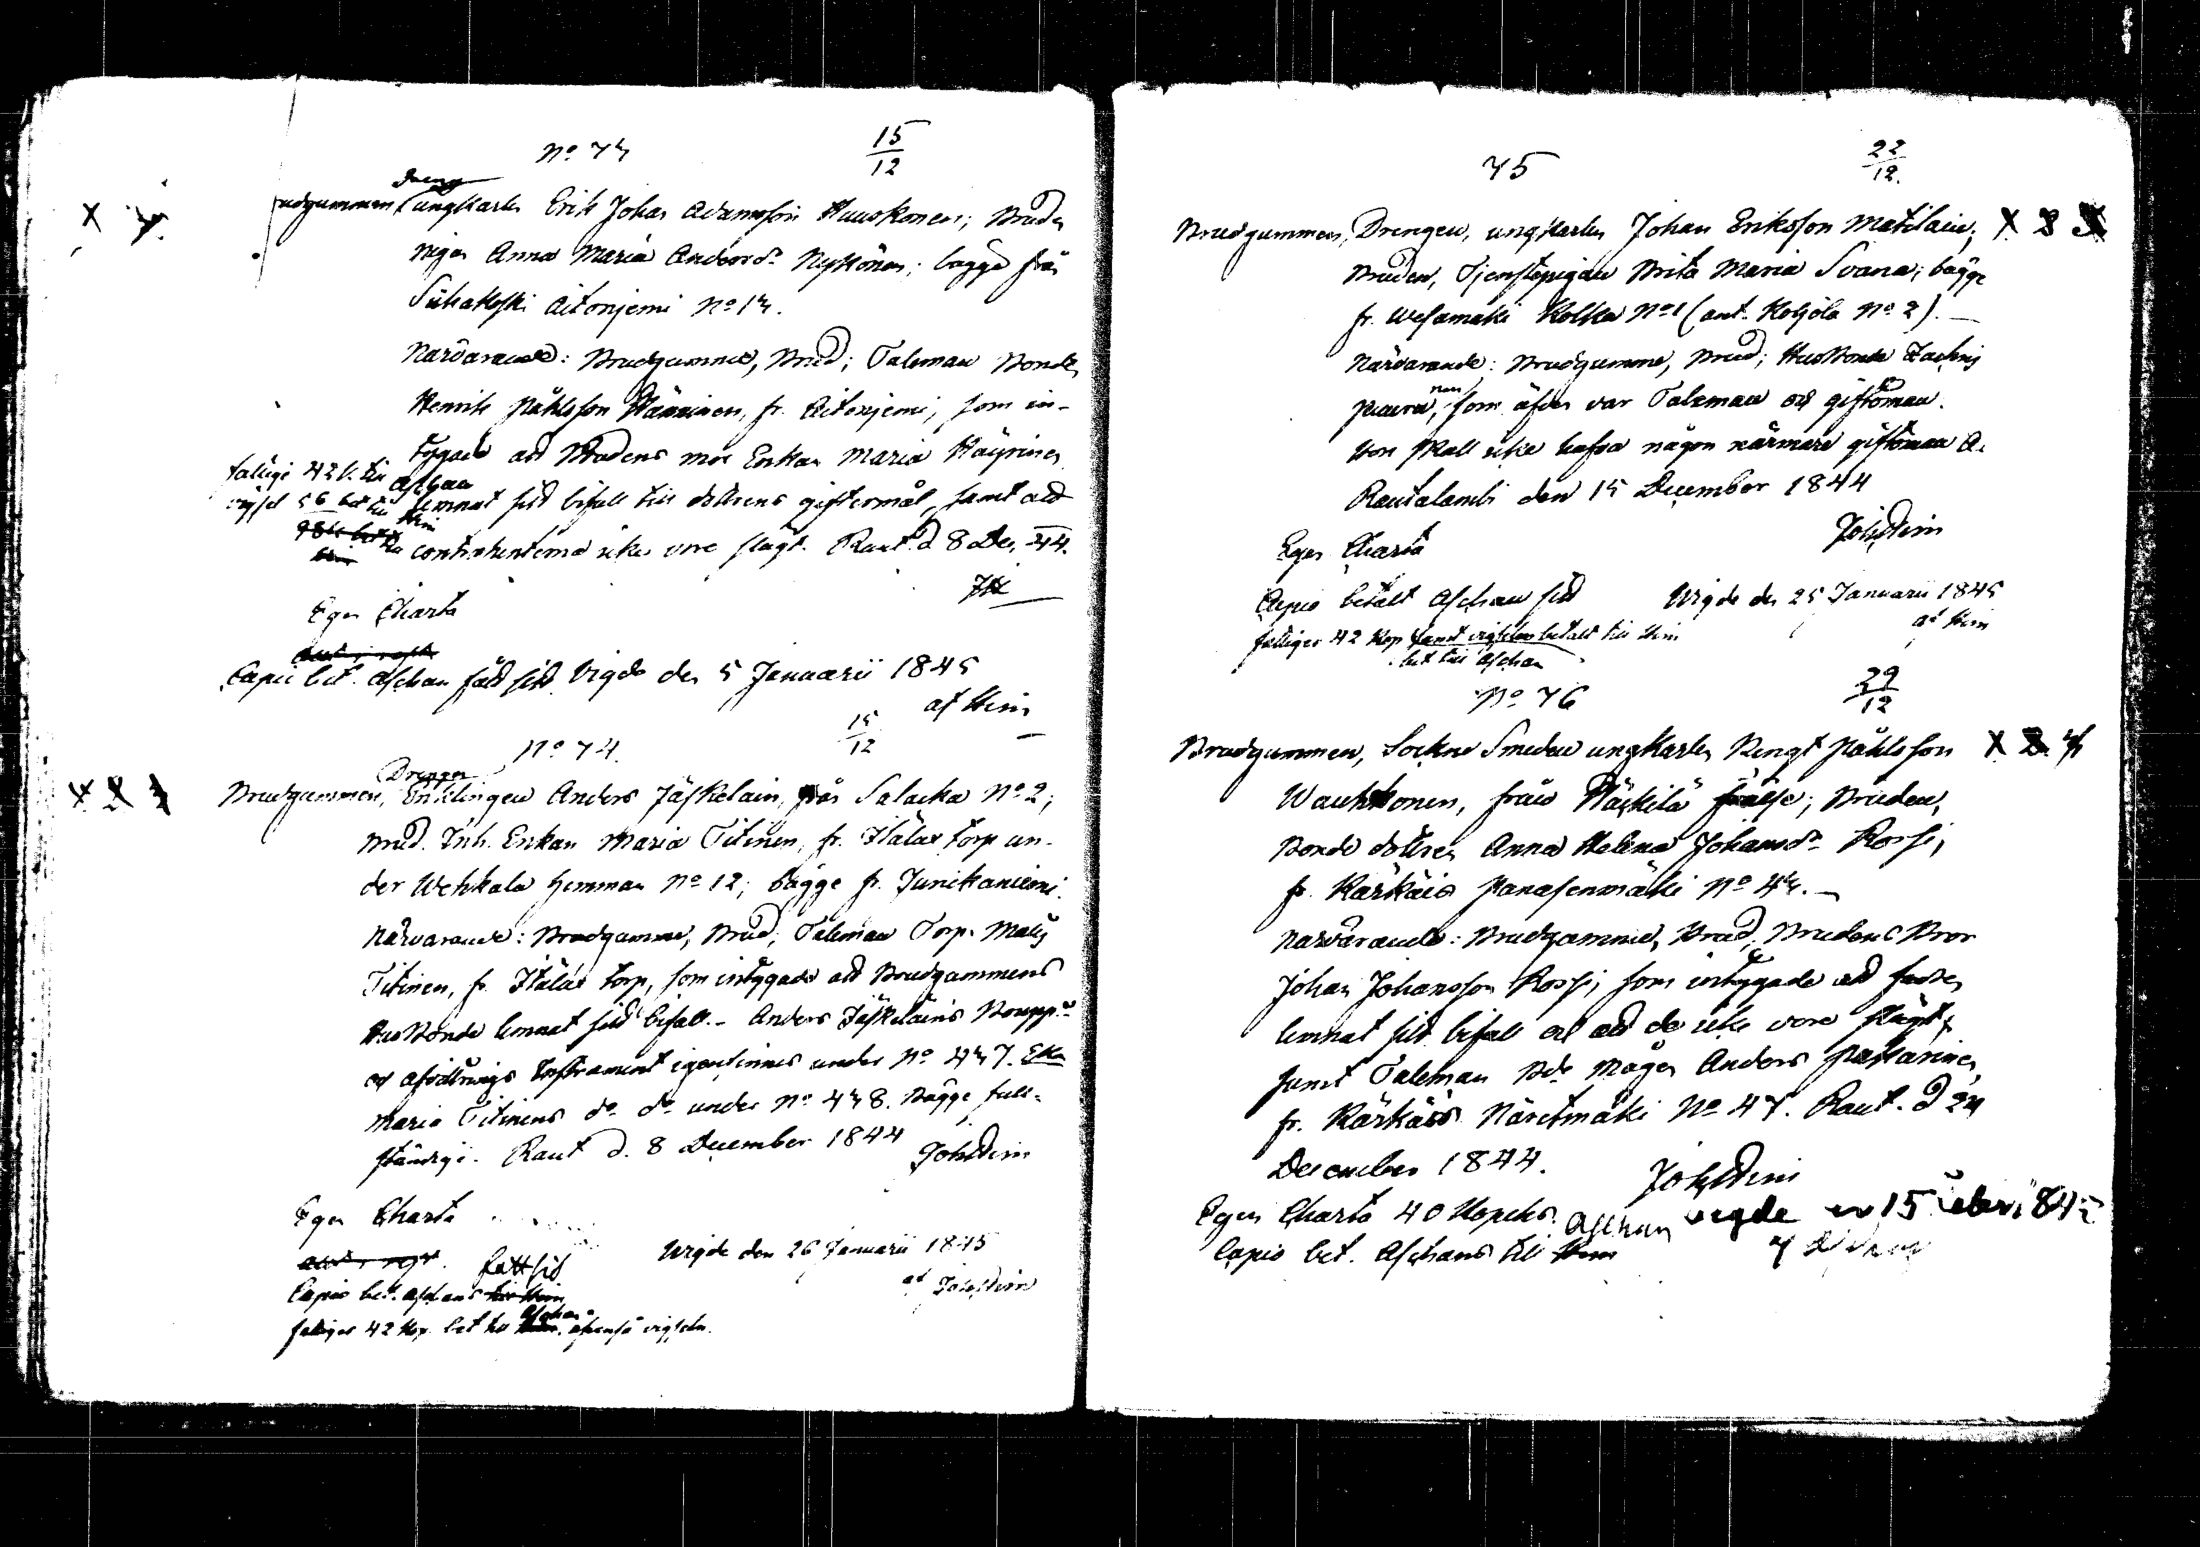 No 73 15/12
Dreng
udgummen ungkarlen Erik Johan Adamsson Huuskonen; Bruden
Pigan Anna Maria Andersdr Nyykönen; bägge från
Siikakoski Aitoniemi No 13.
Närvarande: Brudgumme, Brud; Taleman Bonden
Henrik Påhlsson Hänninen, fr. Aitoniemi, som in-
tygade att Brudens mor Enkan Maria Häyrinen
lemnat sitt bifall till dotterens giftermål, samt att
contrahenterna icke vore slägt. Raut. d 8 Dec. 44.
fattige 42 k. till Aschan
vigsel 56 bet till Hein
Egen Charta
Capio bet. Aschan fått sitt Vigde den 5 Januarii 1845
af Hein
No 74. 15/12
Drengen
Brudgummen, Enklingen Anders Jäskelain, från Salacka No 2;
Brud. Inh. Enkan Maria Titinen, fr. Itälax torp un-
der Wehkala hemman No 12; bägge fr. Junikaniemi.
Närvarande: Brudgumme, Brud; Taleman Torp. Mats
Titinen, fr. Itälax torp, som intygade att Brudgummens
Husbonde lemnat sitt bifall. - Anders Jäskelains Boupp.
och afvittrings Instrument igenfinnes under No 437. Enk.
Maria Titinens do do under No 438. Bägge full-
ständige. Raut d. 8 December 1844
Joh Hein
Egen Charta
fått sitt
Capio bet. Aschans till Hein
Wigde den 26 Januarii 1845
af Joh Hein
fattiges 42 kop. bet till Aschan äfvenså vigseln.
75 22/12.
Brudgummen, Drengen, ungkarlen Johan Eriksson Matilain;
Bruden, Tjenstepigan Brita Maria Svana; bägge
fr. Wesamäki Kolka No 1 (ant. Koljola No 2). -
Närvarande: Brudgumme, Brud; Husbonde Zachris
som äfven var Taleman och giftoman.
Hon skall icke hafva någon närmare giftoman
Rautalambi den 15 December 1844
Joh Hein
Egen Charta
Capio betalt Aschan sitt Wigde den 25 Januarii 1845
af Hein
fattiges 42 kop samt vigseln betalt till Hein
bet till Aschan
No 76 29/12
Brudgummen, Sockne Smeden ungkarlen Bengt Påhlsson
Wauhkonen, från Häykilä frälse; Bruden,
Bonde dottren Anna Helena Johansdr Rossi,
fr. Kärkäis Panasenmäki No 43. -
Närvarande: Brudgumme, Brud, Brudens Bror
Johan Johansson Rossi, som intygade att fadren
lemnat sitt bifall och att de icke vore slägt;
samt Taleman Bde Mågen Anders Pakarinen,
fr. Kärkäis Näretmäki No 47. Raut. d 24
December 1844.
Joh Hein
Egen Charta 40 Kopeks. Aschan vigde
Capio bet. Aschans till Hein